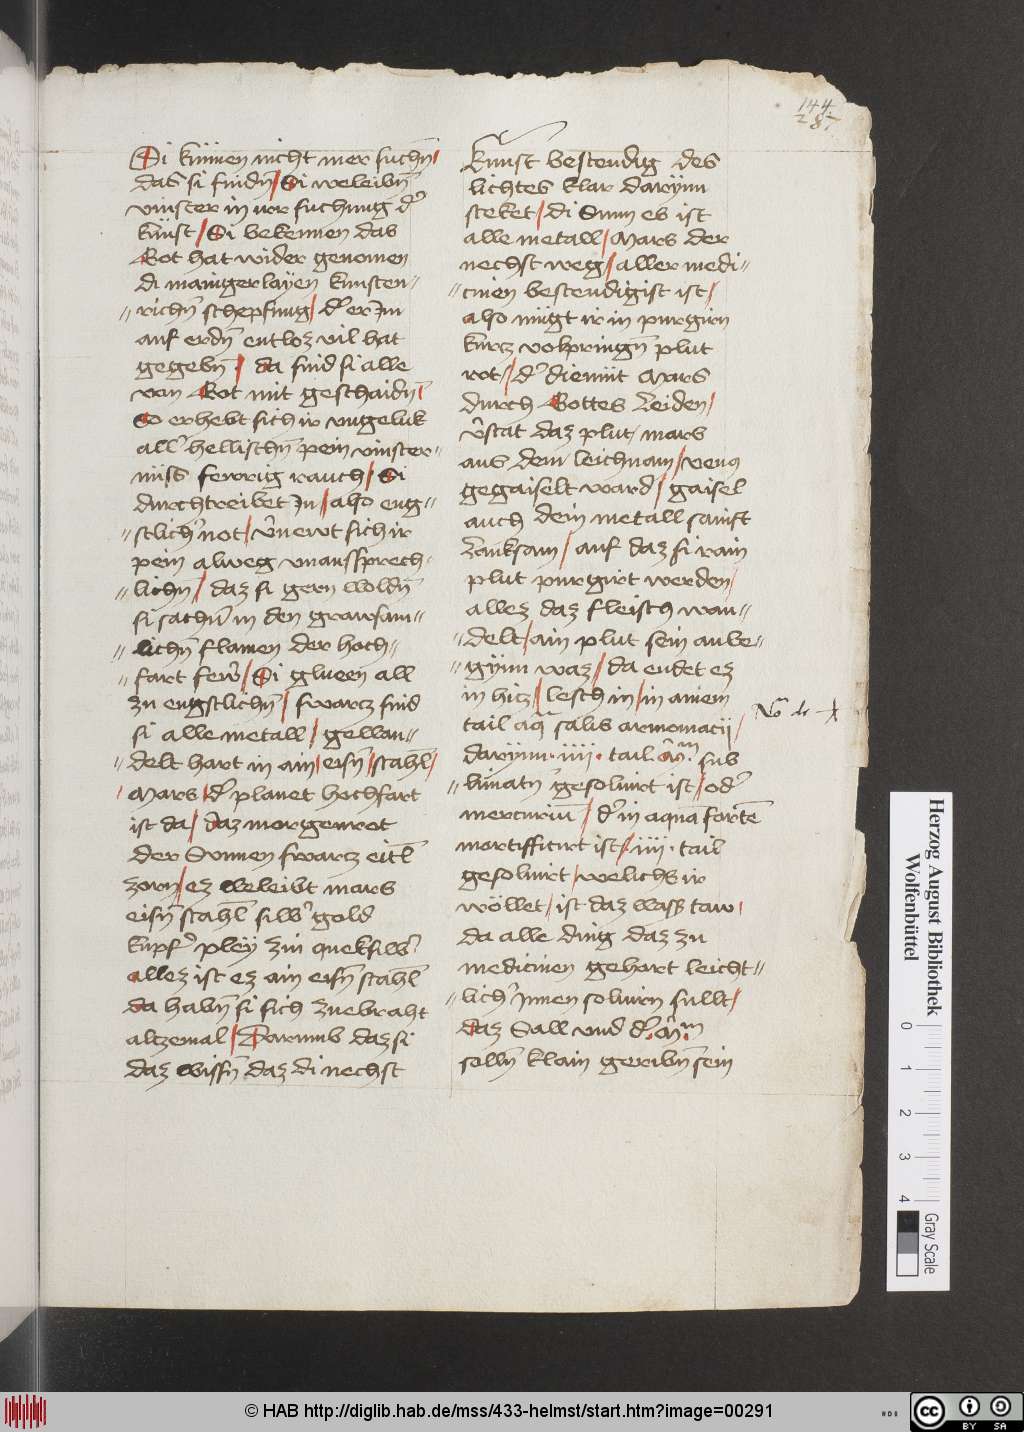 144
287
Si künnen nicht mer suchn̄
das si findn̄ / Si weleibn̄
vinster in irr suchung d̕
künst / Si bekennen das
Got hat wider genomen
di mainigerlayen kunsten=
=richn̄ schepfung / d̕ er Im
auf erdn̄ entloz vil hat
gegebn̄ / da sind si alle
von Got mit geschaidn̄ /
So erhebt sich ir vngeluk
all̕ hellischn̄ pein vinster=
nüss fewrig rauch / Si
durchtreibet In / also eng=
=stlich̕ not / v̄newt sich ir
pein alweg vnaussprech=
=lichn̄ / daz si gern woldn̄
si sachn̄ in den grawsam=
=lichn̄ flamen der hoch=
=fart few̕ / Si glueen all
zu engstlichn̄ / swarcz sind
si alle metall / gellan=
=delt hart in ain / eisn̄ / stahl /
Mars / d̕ planet hochfart
ist da / daz morgenrot
der Sunnen swarcz eitl̄
zorn / ez weleibt mars
eisn̄ stahl silb̕ gold
kupf̕ pley zin queksilb̕
allez ist ez ain eisn̄ stahl
da habn̄ si sich zuebraht
alczemal / Darumb daz si
daz wissn̄ daz di nechst
kunst bestendig des
lichtes klar darynn
steket / di Sunn es ist
alle metall / Mars der
nechst weg / aller medi=
=cinen bestendigist ist /
also mügt ir in purgirn
kurcz volpringn̄ plut
rot / d̕ diemüt Mars
durch Gottes Leiden /
v̄stat daz plut / mars
aus dem leichnam / venꝰ
gegaiselt ward / gaisel
auch dein metall sanft
Lanksam / auf daz si rain
plut purgirt werden /
allez daz fleisch wan=
=delt / ain plut sein anbe=
=gynn waz / da endet ez
in hicz / lesch in / in ainem
tail aq̄ salis armoniaci /
darynn · iiii · tail
sub
=limatn̄ gesoluirt ist / od̕
mercuriū / d̕ in aqua fortē
mortifficirt ist / · iiii · tail
gesoluirt / welichs ir
wöllet / ist daz wass̕ taw /
da alle ding daz zu
medicinen gehort leicht=
=lich̕ Innen soluirn sullt /
daz Sall vnd d̕
solln̄ klain geribn̄ sein
Herzog August Bibliothek
Wolfenbüttel
0 1 2 3 4
Gray Scale
© HAB http://diglib.hab.de/mss/433-helmst/start.htm?image=00291
HAB
cc BY SA